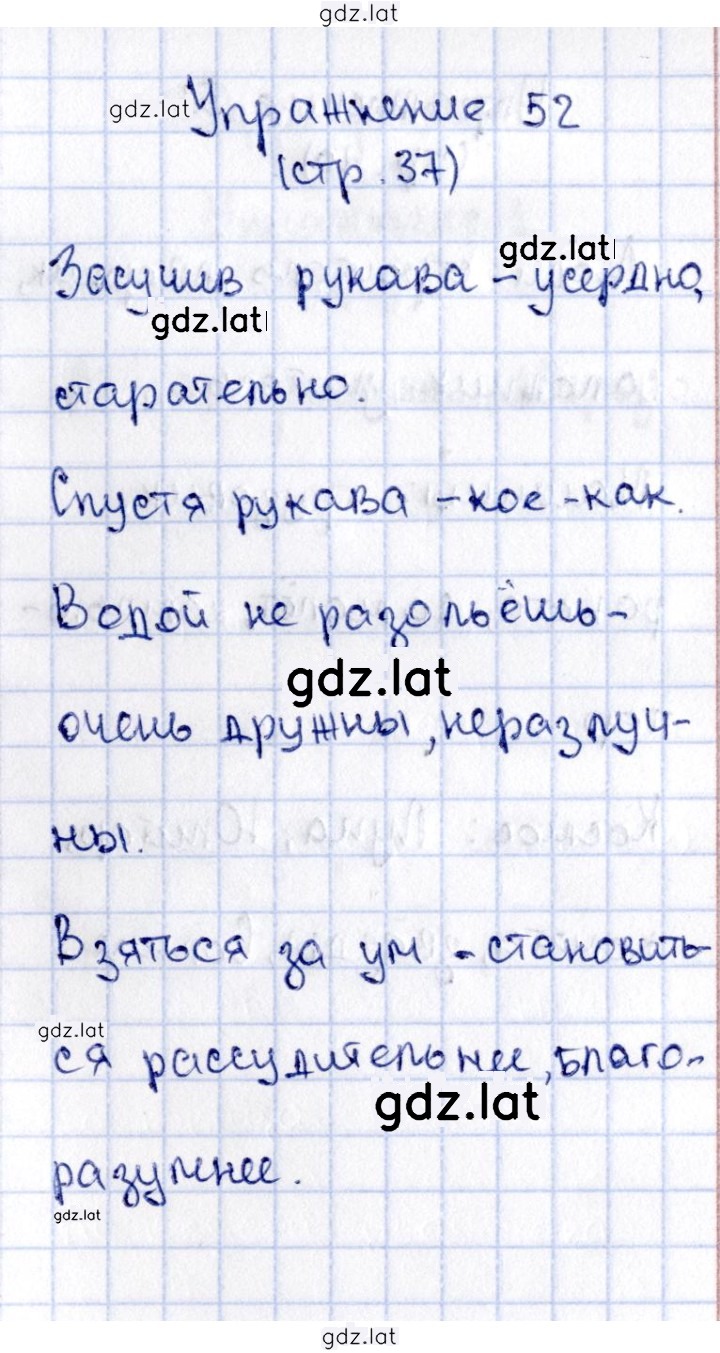 gdz.lat
gdz.lat
Упражнение 52
(стр. 37)
gdz.lat
Засучив рукава – усердно,
gdz.lat
старательно.
Спустя рукава – кое-как.
Водой не разольёшь –
gdz.lat
очень дружны, неразлуч-
ны.
Взяться за ум - становить-
gdz.lat
ся рассудительнее, благо-
gdz.lat
разумнее.
gdz.lat
gdz.lat